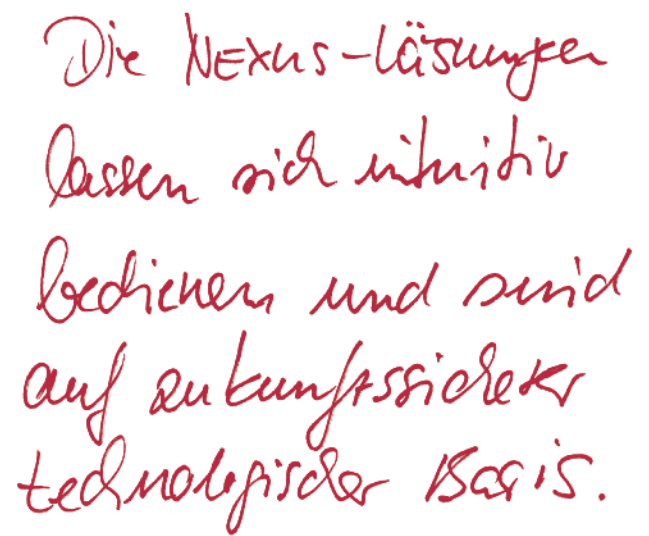 Die NEXUS-Lösungen
lassen sich intuitiv
bedienen und sind
auf zukunftssicherer
technologischer Basis.